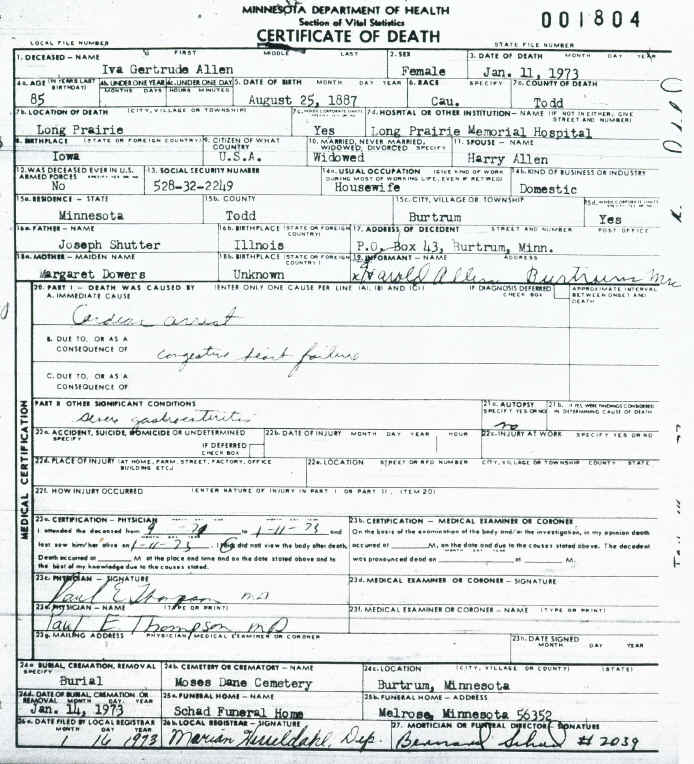 MINNESOTA DEPARTMENT OF HEALTH
Section of Vital Statistics
001804
CERTIFICATE OF DEATH
LOCAL FILE NUMBER STATE FILE NUMBER
1. DECEASED - NAME FIRST MIDDLE LAST 2. SEX 3. DATE OF DEATH MONTH DAY YEAR
Iva Gertrude Allen Female Jan. 11, 1973
4a. AGE (IN YEARS LAST BIRTHDAY) 4b. UNDER ONE YEAR MONTHS DAYS 4c. UNDER ONE DAY HOURS MINUTES 5. DATE OF BIRTH MONTH DAY YEAR 6. RACE SPECIFY 7a. COUNTY OF DEATH
85 August 25, 1887 Cau. Todd
7b. LOCATION OF DEATH (CITY, VILLAGE OR TOWNSHIP) 7d. HOSPITAL OR OTHER INSTITUTION - NAME (IF NOT IN EITHER, GIVE STREET AND NUMBER)
Long Prairie Yes Long Prairie Memorial Hospital
8. BIRTHPLACE (STATE OR FOREIGN COUNTRY) 9. CITIZEN OF WHAT COUNTRY 10. MARRIED, NEVER MARRIED, WIDOWED, DIVORCED SPECIFY 11. SPOUSE - NAME
Iowa U.S.A. Widowed Harry Allen
12. WAS DECEASED EVER IN U.S. ARMED FORCES 13. SOCIAL SECURITY NUMBER 14a. USUAL OCCUPATION (GIVE KIND OF WORK DURING MOST OF WORKING LIFE, EVEN IF RETIRED) 14b. KIND OF BUSINESS OR INDUSTRY
No 528-32-2249 Housewife Domestic
15a. RESIDENCE - STATE 15b. COUNTY 15c. CITY, VILLAGE OR TOWNSHIP 15d.
Minnesota Todd Burtrum Yes
16a. FATHER - NAME 16b. BIRTHPLACE (STATE OR FOREIGN COUNTRY) 17. ADDRESS OF DECEDENT STREET AND NUMBER POST OFFICE
Joseph Shutter Illnois P.O. Box 43, Burtrum, Minn.
18a. MOTHER - MAIDEN NAME 18b. BIRTHPLACE (STATE OR FOREIGN COUNTRY) 19. INFORMANT - NAME ADDRESS
Margaret Dowers Unknown x Harold Allen Burtrum
20. PART I - DEATH WAS CAUSED BY (ENTER ONLY ONE CAUSE PER LINE (A), (B) AND (C)) IF DIAGNOSIS DEFERRED CHECK BOX APPROXIMATE INTERVAL BETWEEN ONSET AND DEATH
A. IMMEDIATE CAUSE
Cardiac arrest
B. DUE TO, OR AS A CONSEQUENCE OF congestive heart failure
C. DUE TO, OR AS A CONSEQUENCE OF
MEDICAL CERTIFICATION
PART II OTHER SIGNIFICANT CONDITIONS 21a. AUTOPSY SPECIFY YES OR NO 21b. IF YES, WERE FINDINGS CONSIDERED IN DETERMINING CAUSE OF DEATH
severe gastroenteritis no
22a. ACCIDENT, SUICIDE, HOMICIDE OR UNDETERMINED SPECIFY IF DEFERRED CHECK BOX 22b. DATE OF INJURY MONTH DAY YEAR HOUR 22c. INJURY AT WORK SPECIFY YES OR NO
22d. PLACE OF INJURY (AT HOME, FARM, STREET, FACTORY, OFFICE BUILDING ETC.) 22e. LOCATION STREET OR RFD NUMBER CITY, VILLAGE OR TOWNSHIP COUNTY STATE
22f. HOW INJURY OCCURRED (ENTER NATURE OF INJURY IN PART I OR PART II, ITEM 20)
23a. CERTIFICATION - PHYSICIAN 23b. CERTIFICATION - MEDICAL EXAMINER OR CORONER
I attended the deceased from to 1-11-73 and On the basis of the examination of the body and/or the investigation, in my opinion death
last saw him/her alive on 1-11-73. I did not view the body after death. occurred at M, on the date and due to the causes stated above. The decedent
Death occurred at M at the place and time and on the date stated above and to was pronounced dead on at M.
the best of my knowledge due to the causes stated.
23c. PHYSICIAN - SIGNATURE 23d. MEDICAL EXAMINER OR CORONER - SIGNATURE
Paul E Thompson MD
23e. PHYSICIAN - NAME (TYPE OR PRINT) 23f. MEDICAL EXAMINER OR CORONER - NAME (TYPE OR PRINT)
Paul E Thompson MD
23g. MAILING ADDRESS PHYSICIAN/MEDICAL EXAMINER OR CORONER 23h. DATE SIGNED MONTH DAY YEAR
24a. BURIAL, CREMATION, REMOVAL SPECIFY 24b. CEMETERY OR CREMATORY - NAME 24c. LOCATION (CITY, VILLAGE OR COUNTY) (STATE)
Burial Moses Dane Cemetery Burtrum, Minnesota
24d. DATE OF BURIAL, CREMATION, OR REMOVAL MONTH DAY YEAR 25a. FUNERAL HOME - NAME 25b. FUNERAL HOME - ADDRESS
Jan. 14, 1973 Schad Funeral Home Melrose, Minnesota 56352
26a. DATE FILED BY LOCAL REGISTRAR MONTH DAY YEAR 26b. LOCAL REGISTRAR - SIGNATURE 27. MORTICIAN OR FUNERAL DIRECTOR - SIGNATURE
1 16 1973 Marian Hesseldahl, Dep. Bernard Schad #2039